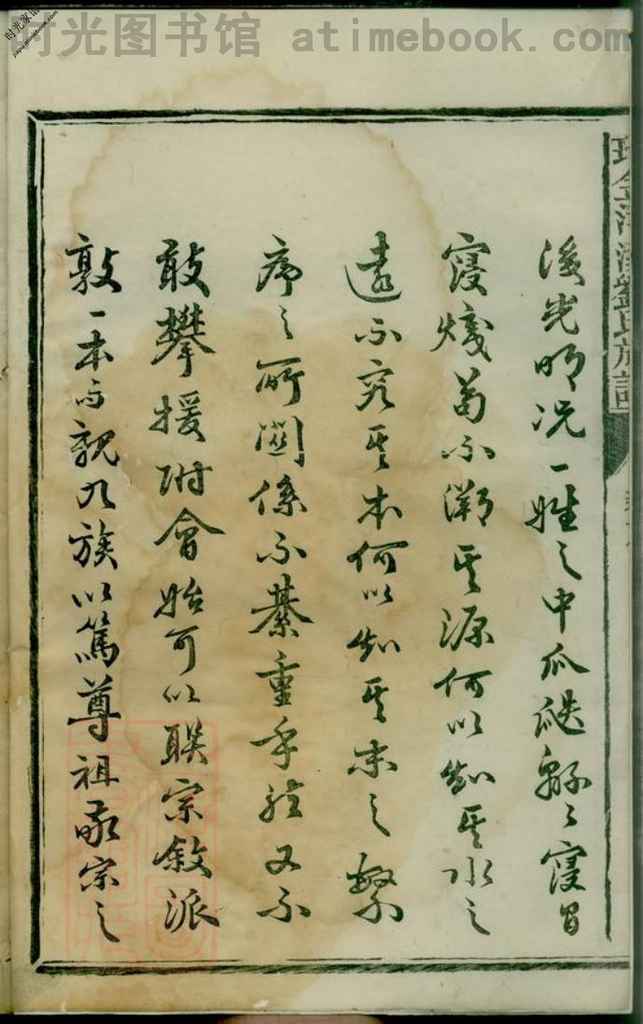 时光图书馆 atimebook.com
光明况一姓之中瓜瓞綿〻寖昌
寖熾苟不溯其源何以知其水之
遠不究其本何以知其末之繁
序之所關係不綦重乎又不
敢攀援附會始可以联宗敘派
敦一本而親九族以篤尊祖敬宗之